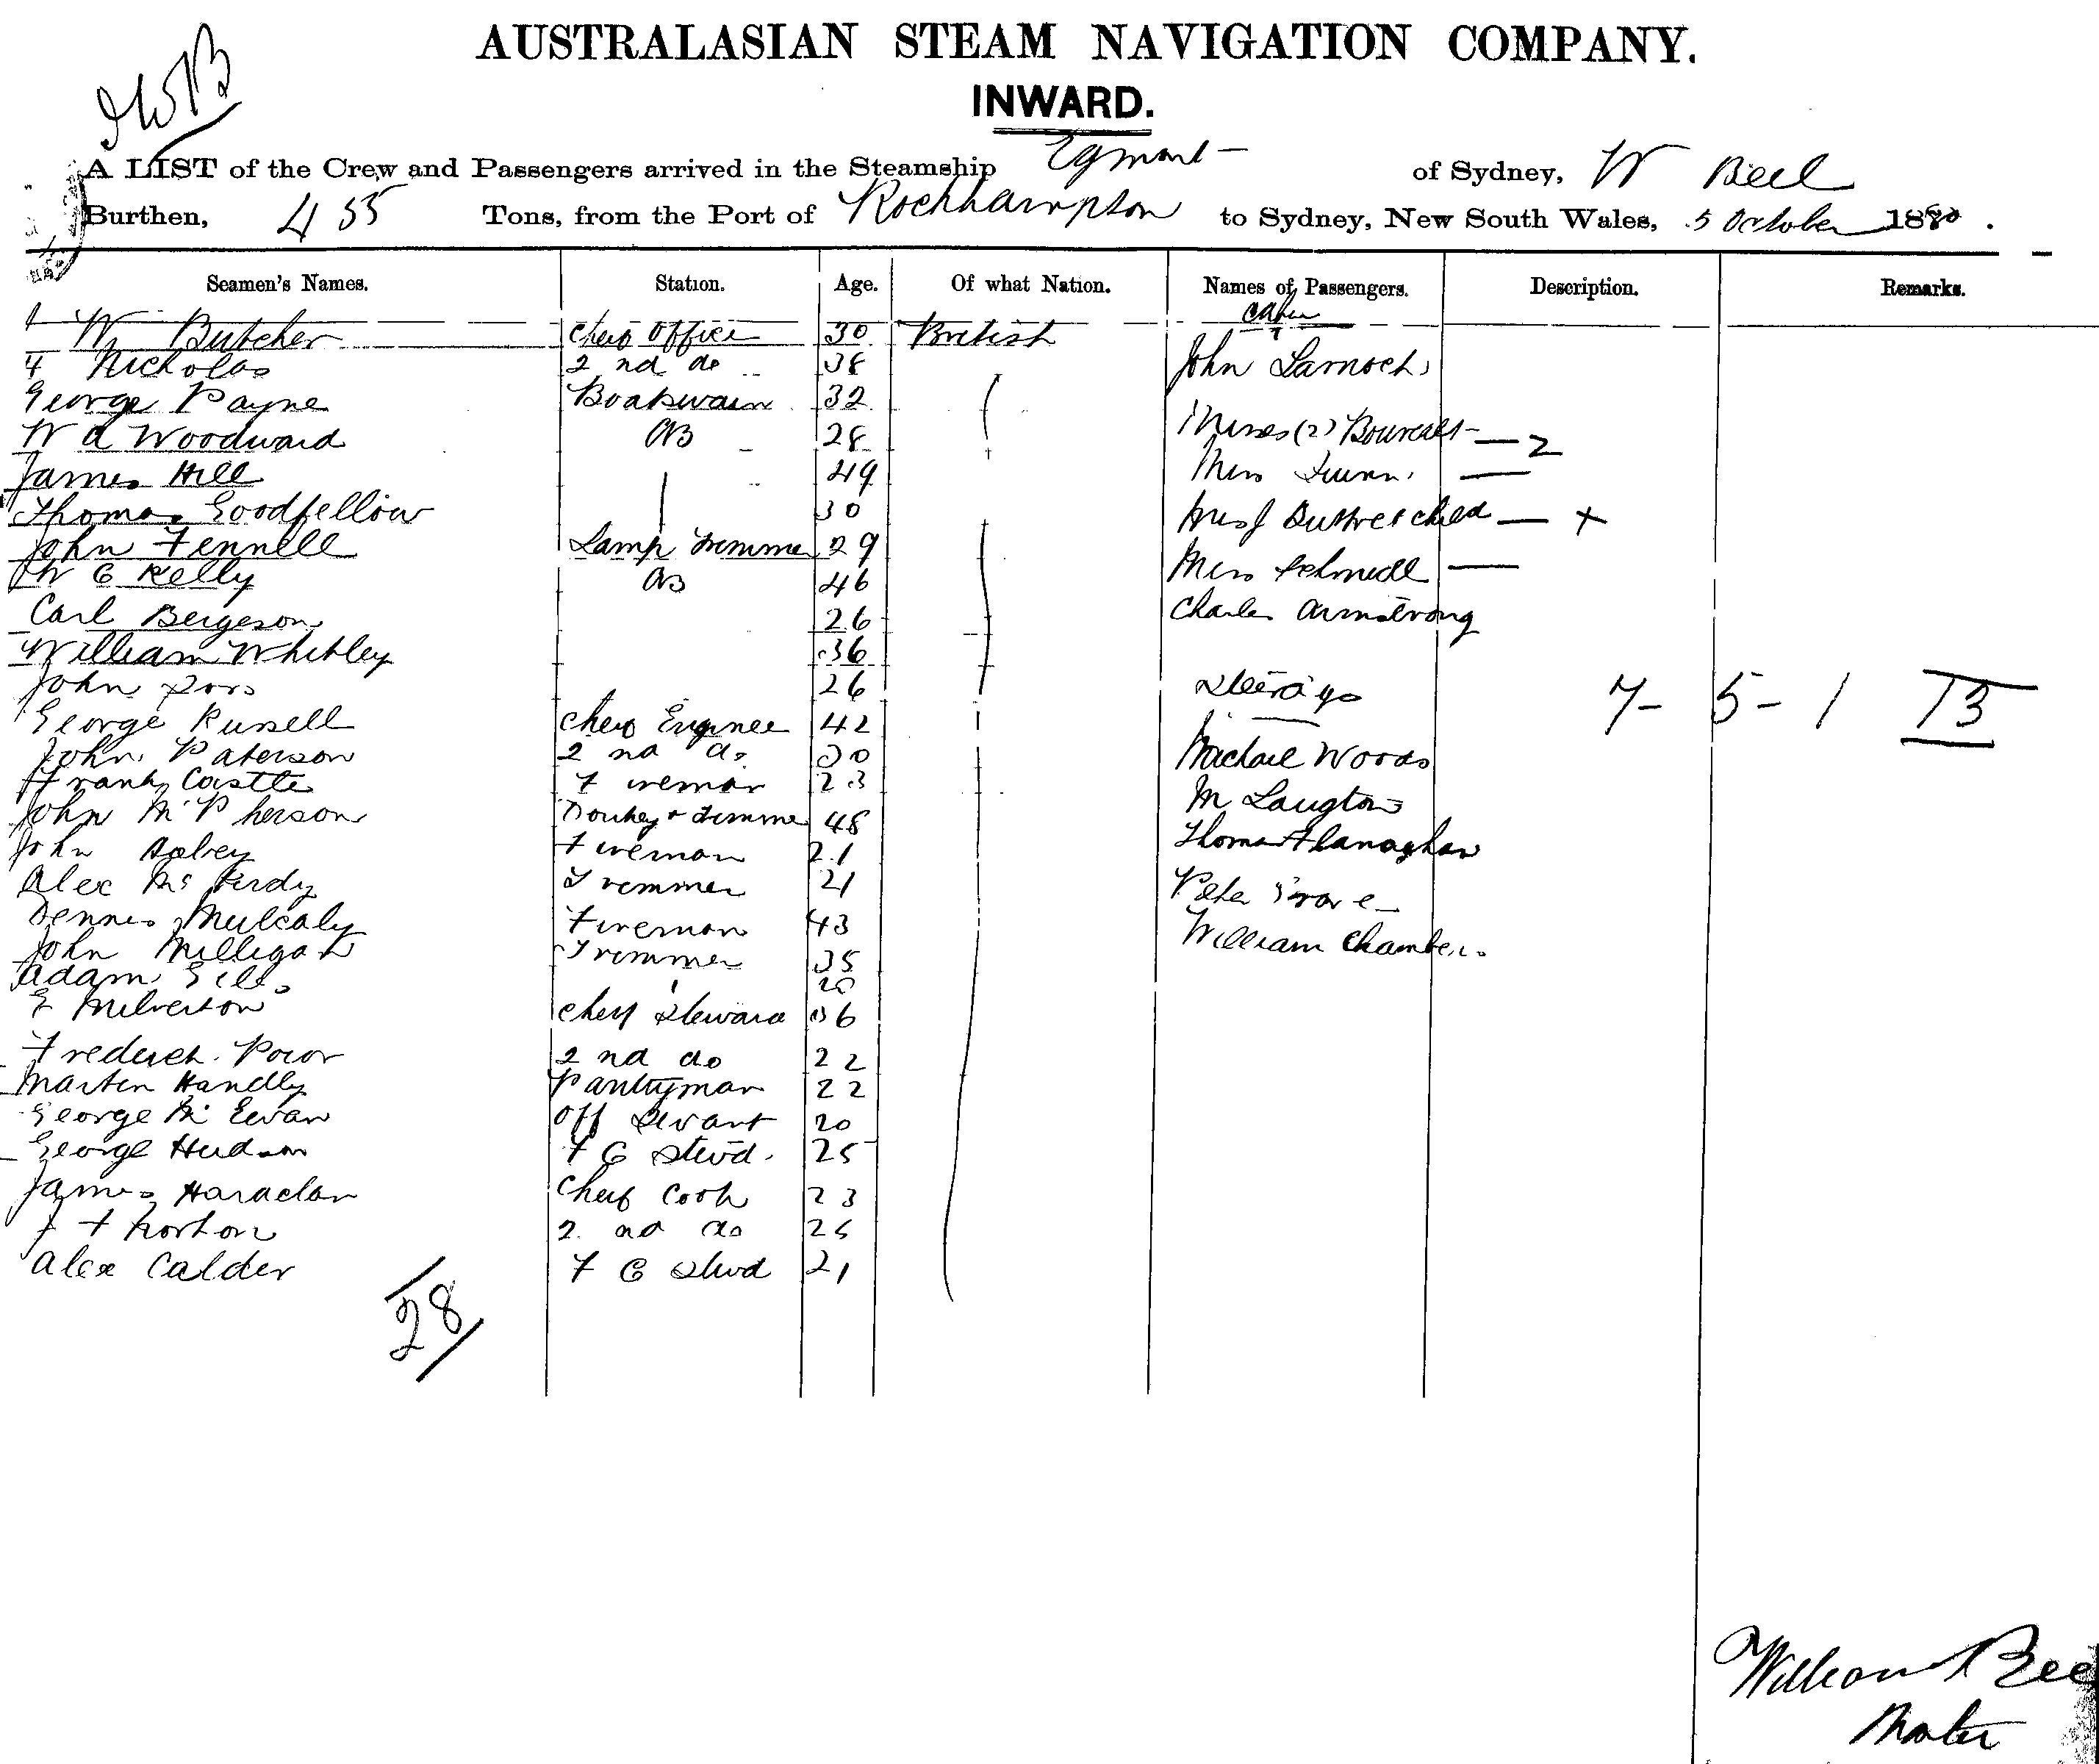 JWB
AUSTRALASIAN STEAM NAVIGATION COMPANY.
INWARD.
A LIST of the Crew and Passengers arrived in the Steamship Egmont of Sydney, W Beel
Burthen, 455 Tons, from the Port of Rockhampton to Sydney, New South Wales, 5 October 1880.
Seamen's Names. Station. Age. Of what Nation. Names of Passengers. Description. Remarks.
W Butcher Chief Officer 30 British
Nicholas 2nd do 38 John
George Payne Boatswain 32
W A Woodward AB 28 2
James Hill 49 Miss
Thomas Goodfellow 30 child +
John Fennell Lamp Trimmer 29
W C Kelly AB 46 Miss Schmidt
Carl Bergeson 26 Charles Armstrong
William Whitley 36
John 26 Steerage 7 - 5 - 1 13
George Russell Chief Enginee 42
John Paterson 2nd do 30 Michael Woods
Frank Castle Fireman 23 M Langton
John McPherson Donkey + Trimmer 48
John Fireman 21 Thomas Flanaghan
Alex Trimmer 21 Peter
Dennis Mulcahy Fireman 43
John Milligan Trimmer 35 William Chambers
Adam 20
E Milverton Chief Steward 36
Frederick 2nd do 22
Martin Handly Pantryman 22
George McEwan Off Servant 20
George Hudson F C Stwd. 25
James Chief Cook 23
J F Norton 2nd do 25
Alex Calder F C Stwd 21
28
William Beel
Master